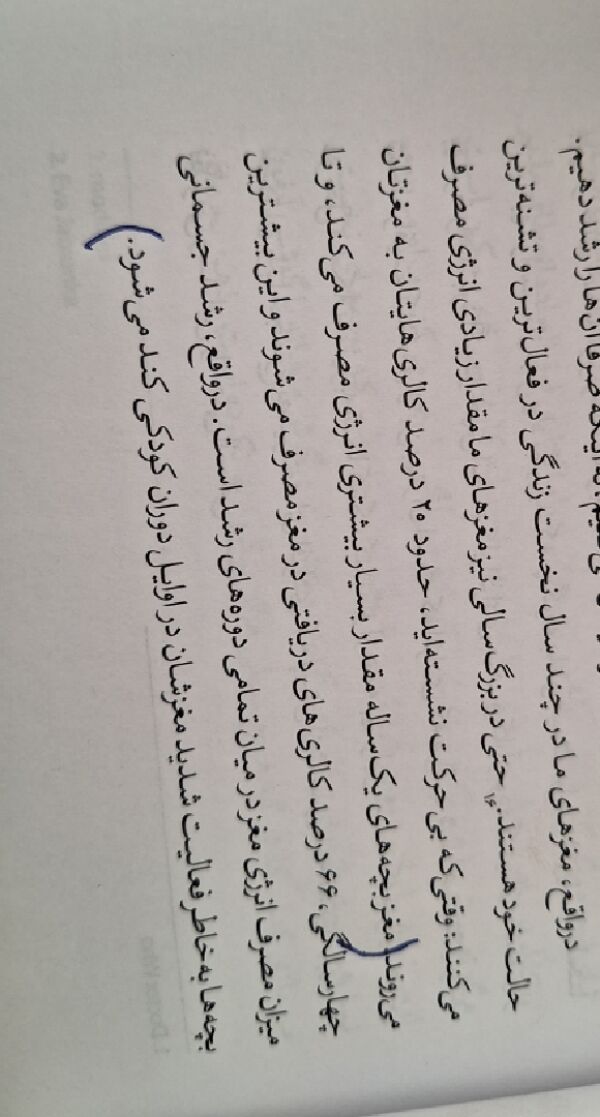 نه اینکه صرفا آن‌ها را رشد دهیم.
درواقع، مغزهای ما در چند سال نخست زندگی در فعال‌ترین و تشنه‌ترین
حالت خود هستند.۱۶ حتی در بزرگ‌سالی نیز مغزهای ما مقدار زیادی انرژی مصرف
می‌کنند: وقتی که بی حرکت نشسته‌اید، حدود ۲۰ درصد کالری‌هایتان به مغزتان
می‌روند. مغز بچه‌های یک‌ساله مقدار بسیار بیشتری انرژی مصرف می‌کند، و تا
چهارسالگی، ۶۶ درصد کالری‌های دریافتی در مغز مصرف می‌شوند و این بیشترین
میزان مصرف انرژی مغز در میان تمامی دوره‌های رشد است. درواقع، رشد جسمانی
بچه‌ها به خاطر فعالیت شدید مغزشان در اوایل دوران کودکی کند می‌شود.